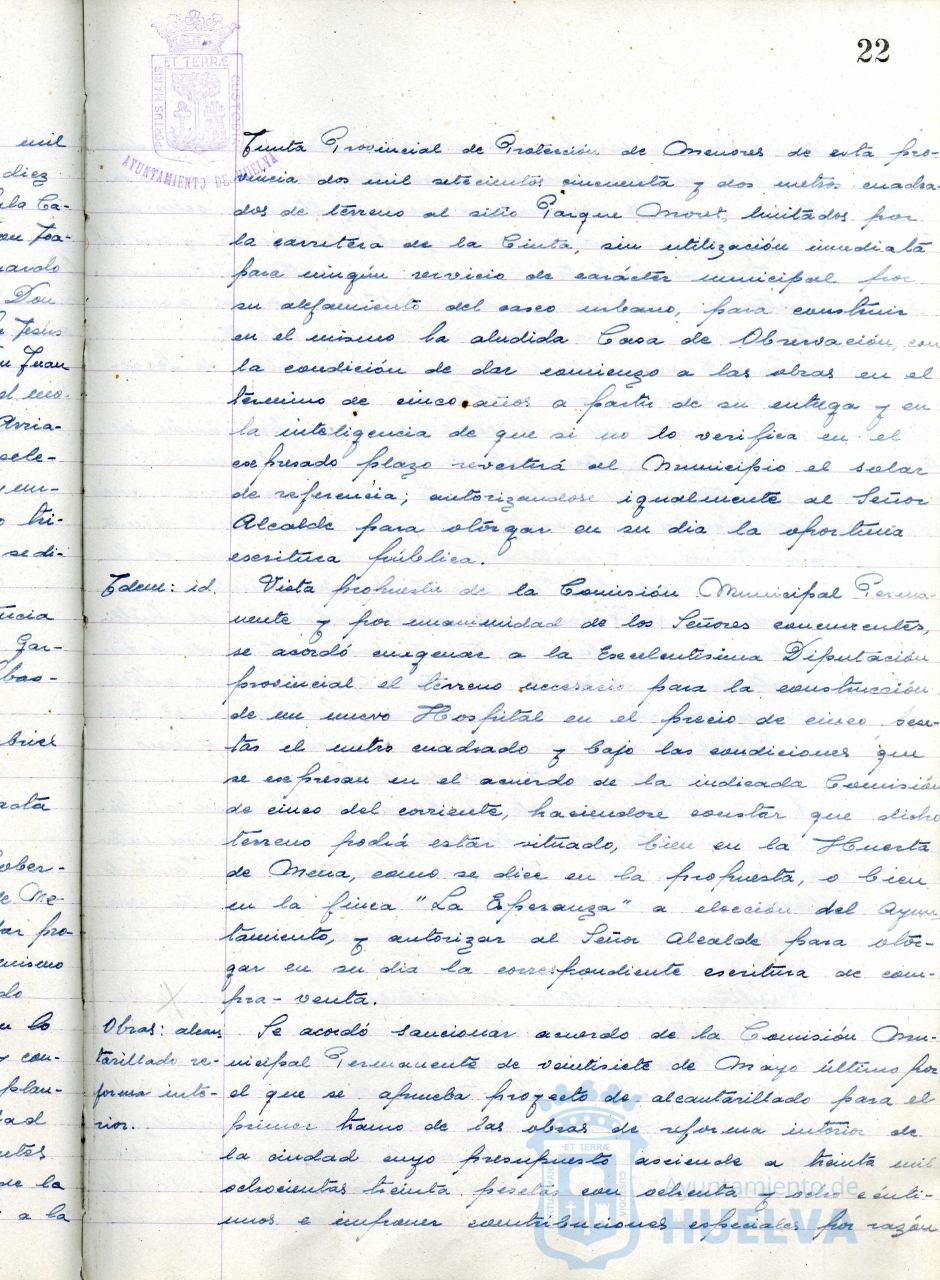 22
ET TERRÆ
PORTUS MARIS
CUSTODIA
AYUNTAMIENTO DE HUELVA
Junta Provincial de Protección de Menores de esta pro-
vincia dos mil setecientos cincuenta y dos metros cuadra-
dos de terreno al sitio Parque Moret, limitados por
la carretera de la Cinta, sin utilización inmediata
para ningún servicio de carácter municipal por
su alejamiento del casco urbano, para construir
en el mismo la aludida Casa de Observación, con
la condición de dar comienzo a las obras en el
término de cinco años a partir de su entrega y en
la inteligencia de que si no lo verifica en el
expresado plazo revertirá al Municipio el solar
de referencia; autorizandose igualmente al Señor
Alcalde para otorgar en su dia la oportuna
escritura pública.
Idem: id.
Vista propuesta de la Comisión Municipal Perma-
nente y por unanimidad de los Señores concurrentes,
se acordó enagenar a la Excelentísima Diputación
provincial el terreno necesario para la construcción
de un nuevo Hospital en el precio de cinco pese-
tas el metro cuadrado y bajo las condiciones que
se expresan en el acuerdo de la indicada Comisión
de cinco del corriente, haciendose constar que dicho
terreno podrá estar situado, bien en la Huerta
de Mena, como se dice en la propuesta, o bien
en la finca "La Esperanza" a elección del Ayun-
tamiento, y autorizar al Señor Alcalde para otor-
gar en su dia la correspondiente escritura de com-
pra-venta.
Obras: alcan-
tarillado re-
forma inte-
rior.
Se acordó sancionar acuerdo de la Comisión Mu-
nicipal Permanente de veintisiete de Mayo último por
el que se aprueba proyecto de alcantarillado para el
primer tramo de las obras de reforma interior de
la ciudad cuyo presupuesto asciende a treinta mil
ochocientas treinta pesetas con ochenta y ocho cénti-
mos e imponer contribuciones especiales por razón
mil
diez
ardo
Don
Jesús
Juan
Arria-
cele-
tri-
sedi-
Gar-
bas-
acta
ober-
de Me-
pro-
mismo
lo
y con-
plan-
de la
a la
ET TERRÆ
Ayuntamiento de
HUELVA